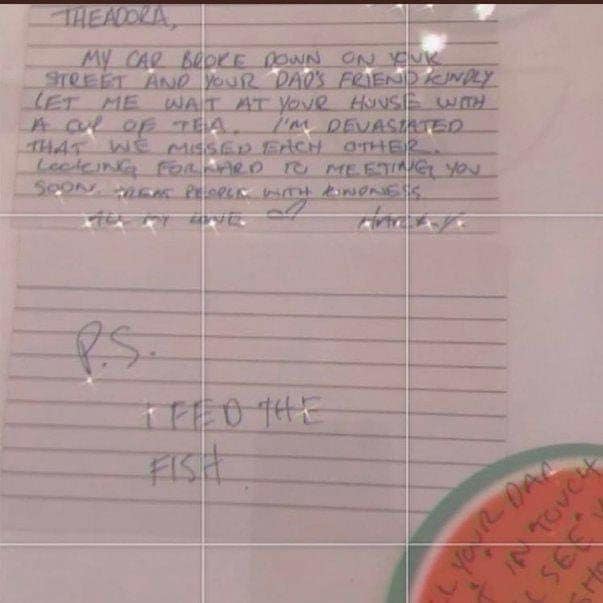 THEADORA,
MY CAR BROKE DOWN ON YOUR
STREET AND YOUR DAD'S FRIEND KINDLY
LET ME WAIT AT YOUR HOUSE WITH
A CUP OF TEA. I'M DEVASTATED
THAT WE MISSED EACH OTHER.
LOOKING FORWARD TO MEETING YOU
SOON. TREAT PEOPLE WITH KINDNESS
ALL MY LOVE HARRY.
P.S.
I FED THE
FISH
YOUR DAD
IN TOUCH
SEE